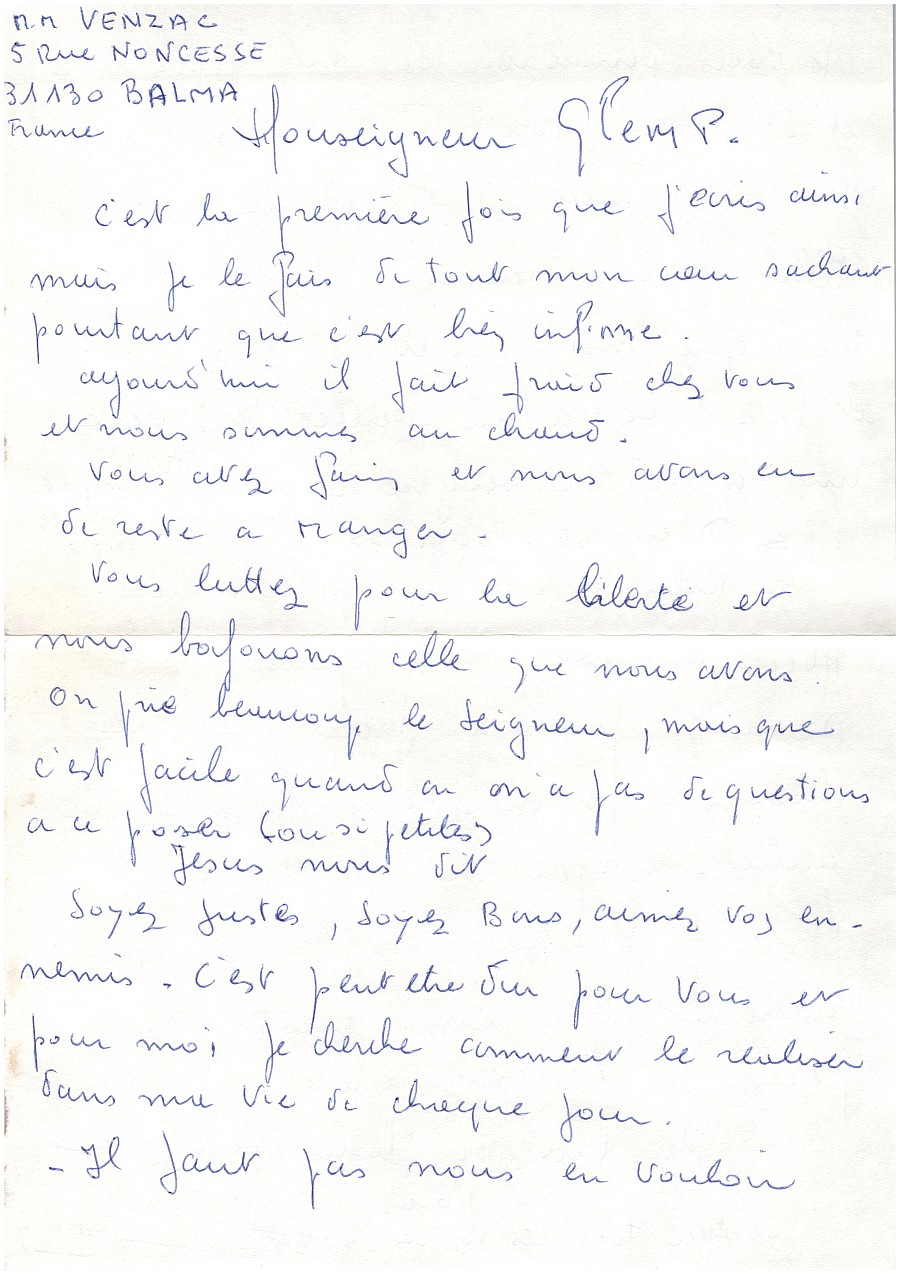 M.M VENZAC
5 Rue NONCESSE
31130 BALMA
France
Monseigneur Glemp.
c'est la première fois que j'ecris ainsi
mais je le fais de tout mon cœur sachant
pourtant que c'est bien infime.
aujourd'hui il fait froid chez vous
et nous sommes au chaud.
Vous avez faim et nous avons en
de reste a manger.
Vous luttez pour la liberté et
nous bafouons celle que nous avons.
On prie beaucoup le Seigneur, mais que
c'est facile quand on on'a pas de questions
a ce poser (ou si petites)
Jesus nous dit
Soyez Justes, Soyez Bons, aimez vos en-
nemis. C'est peut etre dur pour Vous et
pour moi je cherche comment le realiser
dans ma vie de chaque jour.
- Il faut pas nous en vouloir